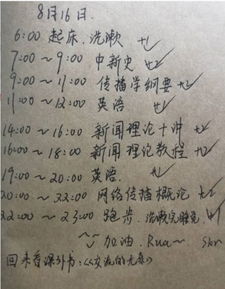 8月16日.
6:00 起床、洗漱 +1 ✓
7:00 ~ 9:00 中新史 +2 ✓
9:00 ~ 11:00 传播学纲要 +2 ✓
11:00 ~ 12:00 英语 +1 ✓
14:00 ~ 16:00 新闻理论十讲 +2 ✓
16:00 ~ 18:00 新闻理论教程 +2 ✓
19:00 ~ 20:00 英语 +1 ✓
20:00 ~ 22:00 网络传播概论 +2 ✓
22:00 ~ 23:00 跑步、洗漱完睡觉 +1 ✓
加油. Rua~
回来看课外书: